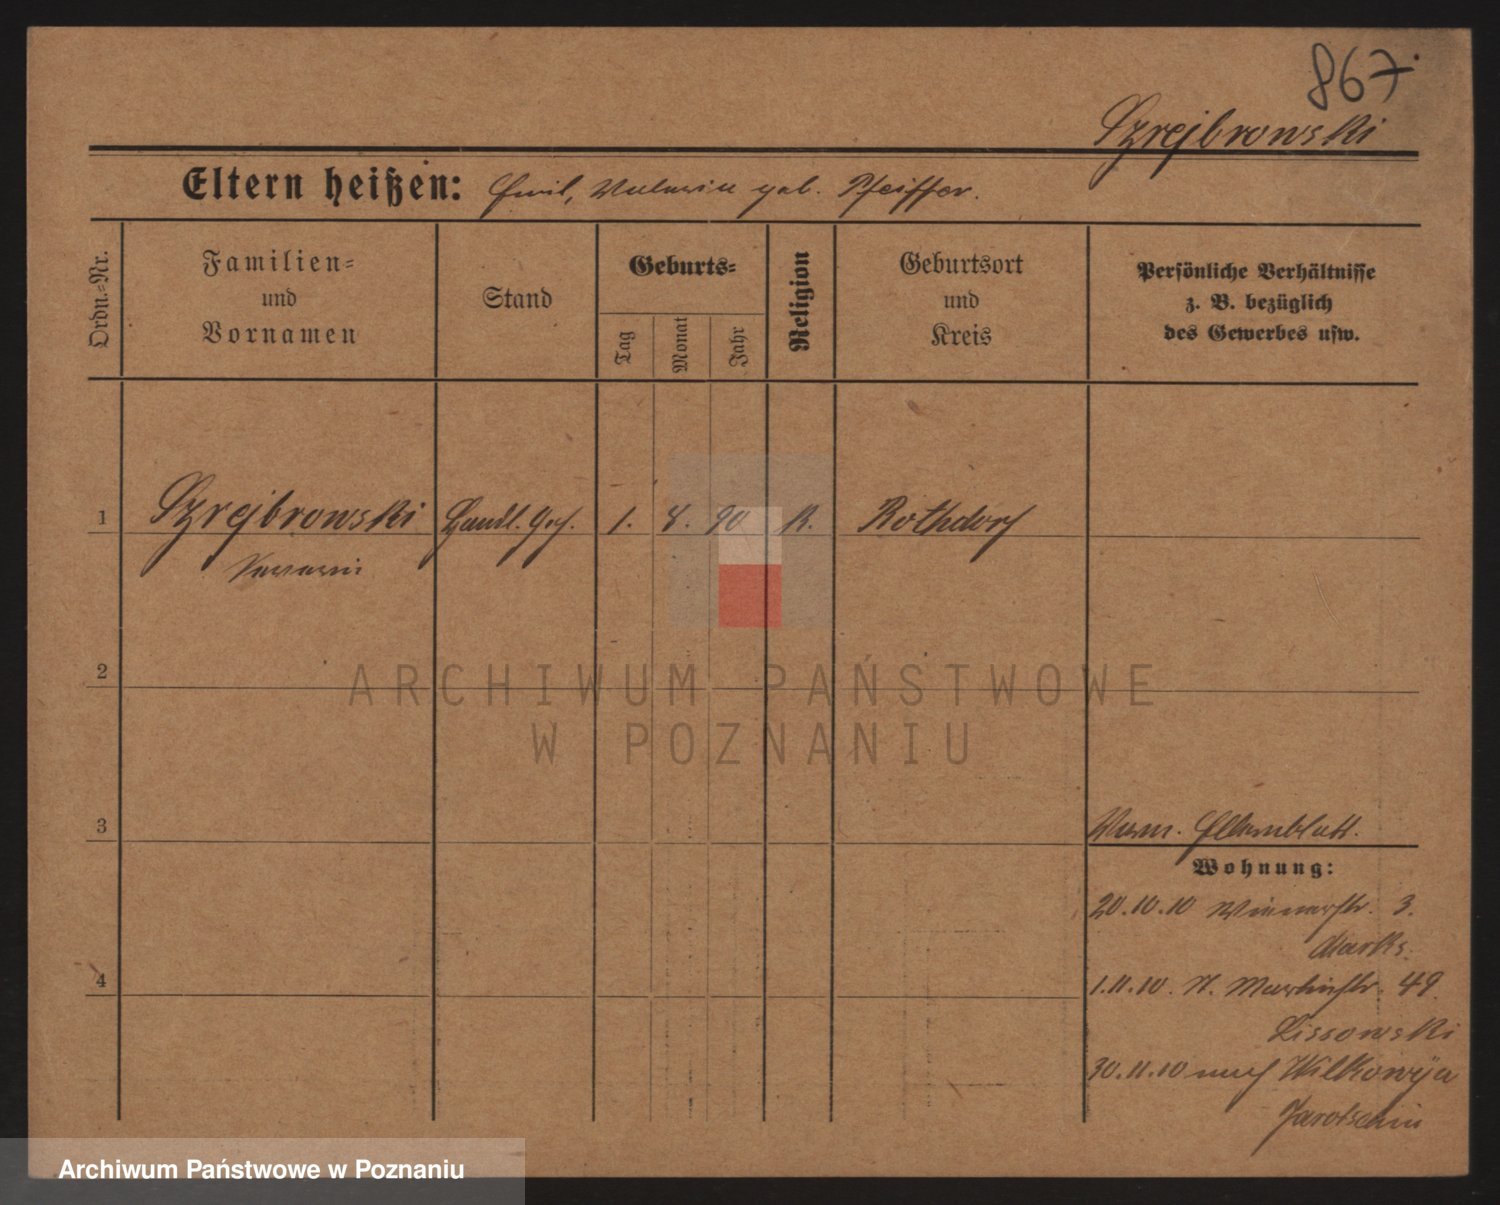 867.
Szrejbrowski
Eltern heißen: Emil, geb. Pfeiffer.
Ordn.-Nr.
Familien-
und
Vornamen
Stand
Geburts-
Tag
Monat
Jahr
Religion
Geburtsort
und
Kreis
Persönliche Verhältnisse
z. B. bezüglich
des Gewerbes usw.
1 Szrejbrowski Handl. Geh. 1. 8. 90 K. Rothdorf
2
3
Elternblatt.
Wohnung:
20.10.10 Wienerstr. 3.
Marks.
4
1.11.10. St. Martinstr. 49.
Lissowski
30.11.10 nach Wilkowya
Jarotschin
ARCHIWUM PAŃSTWOWE
W POZNANIU
Archiwum Państwowe w Poznaniu